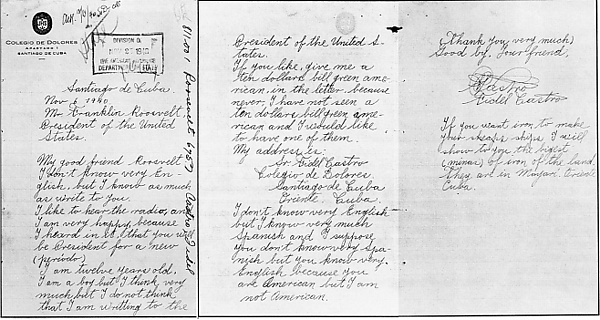 COLEGIO DE DOLORES
APARTADO 1
SANTIAGO DE CUBA
DIVISION O
DEPARTMENT OF STATE
811.001 Roosevelt, F.D./ Castro, Fidel
Santiago de Cuba.
Nov 6 1940
Mr Franklin Roosevelt,
President of the United
States.
My good friend Roosevelt
I don't know very En-
glish, but I know as much
as write to you.
I like to hear the radio, and
I am very happy, because
I heard in it, that you will
be President for a new
(periodo).
I am twelve years old.
I am a boy but I think very
much but I do not think
that I am writing to the
President of the United S-
tates.
If you like, give me a
ten dollars bill green ame-
rican, in the letter, because
never, I have not seen a
ten dollars bill green ame-
rican and I would like
to have one of them.
My address is:
Sr. Fidel Castro
Colegio de Dolores
Santiago de Cuba
Oriente, Cuba.
I don't know very English
but I know very much
Spanish and I suppose
you don't know very Spa-
nish but you know very
English because you
are American but I am
not American.
(Thank you very much)
Good by. Your friend,
Castro
Fidel Castro
If you want iron to make
your ships I will
show to you the bigest
(minas) of iron of the land.
They are in Mayari. Oriente
Cuba.